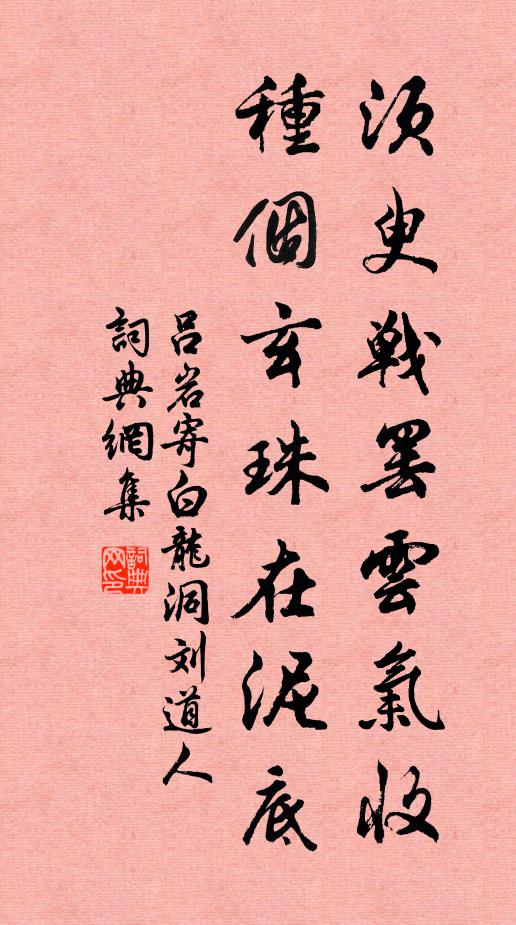 須臾戰罷雲氣收
種個玄珠在泥底
吕岩寄白龍洞刘道人
詞典網集
詞典网印